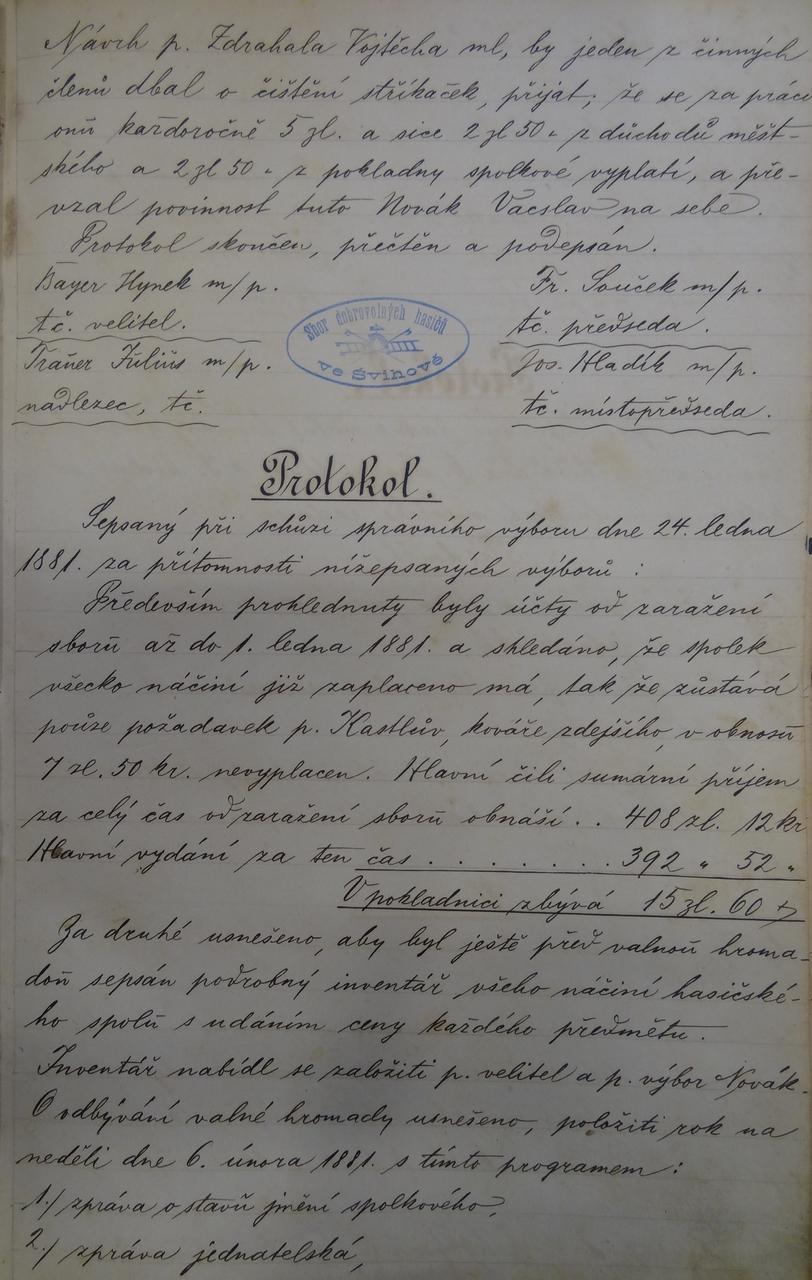 Návrh p. Zdrahala Vojtěcha ml, by jeden z činných
členů dbal o čištění stříkaček, přijat; že se za práci
onu každoročně 5 zl. a sice 2 zl 50 „ z důchodů měšt-
ského a 2 zl 50 „ z pokladny spolkové vyplatí, a pře-
vzal povinnost tuto Novák Vácslav na sebe.
Protokol skončen, přečtěn a podepsán.
Bayer Hynek m/p. Fr. Souček m/p.
tč. velitel. tč. předseda.
Sbor dobrovolných hasičů
ve Svinově
Julius m/p. Jos. Hladík m/p.
nadlezec, tč. tč. místopředseda.
Protokol.
Sepsaný při schůzi správního výboru dne 24. ledna
1881. za přítomnosti nížepsaných výborů :
Především prohlednuty byly účty od zaražení
sboru až do 1. ledna 1881. a shledáno, že spolek
všecko náčiní již zaplaceno má, tak že zůstává
pouze požadavek p. Kastlův, kováře zdejšího, v obnosu
7 zl. 50 kr. nevyplacen. Hlavní čili sumární příjem
za celý čas od zaražení sboru obnáší . . 408 zl. 12 kr
Hlavní vydání za ten čas . . . . . . . . 392 „ 52 „
V pokladnici zbývá 15 zl. 60
Za druhé usnešeno, aby byl ještě před valnou hroma-
dou sepsán podrobný inventář všeho náčiní hasičské-
ho spolu s udáním ceny každého předmětu.
Inventář nabídl se založiti p. velitel a p. výbor Novák.
O odbývání valné hromady usnešeno, položiti rok na
neděli dne 6. února 1881. s tímto programem :
1./ zpráva o stavu jmění spolkového,
2./ zpráva jednatelská,